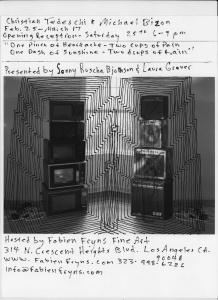 Christian Tedeschi & Michael Bizon
Feb. 25 - March 17
Opening Reception - Saturday 25th 6-9pm
"One Pinch of Heartache - Two Cups of Pain
One Dash of Sunshine - Two drops of Rain"
Presented by Sonny Ruscha Bjornson & Laura Grover
Hosted by Fabien Fryns Fine Art
314 N. Crescent Heights Blvd. Los Angeles Ca.
90048
www.Fabien Fryns.com 323-
info@fabienfryns.com